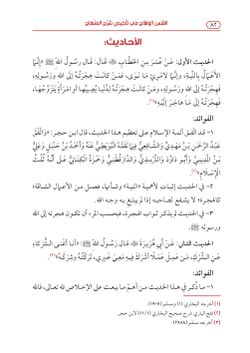 ٨٢
القبس الوهاج في تلخيص شرح المنهاج
الأحاديث:
الحديث الأول: عَنْ عُمَرَ بنِ الخَطَّابِ ﷺ، قَالَ: قَالَ رسول الله ﷺ: «إِنَّمَا
الأَعْمَالُ بِالنِّيَّةِ، وَإِنَّمَا لِامْرِئٍ مَا نَوَى، فَمَنْ كَانَتْ هِجْرَتُهُ إِلَى اللهِ وَرَسُولِهِ،
فَهِجْرَتُهُ إِلَى اللهِ وَرَسُولِهِ، وَمَنْ كَانَتْ هِجْرَتُهُ لِدُنْيَا يُصِيبُهَا أَوِ امْرَأَةٍ يَتَزَوَّجُهَا،
فَهِجْرَتُهُ إِلَى مَا هَاجَرَ إِلَيْهِ»(١).
الفوائد:
١- قد اتفق أئمة الإسلام على تعظيم هذا الحديث، قال ابن حجر: «وَاتَّفَقَ
عَبْدُ الرَّحْمَنِ بْنُ مَهْدِيٍّ وَالشَّافِعِيُّ فِيمَا نَقَلَهُ الْبُوَيْطِيُّ عَنْهُ وَأَحْمَدُ بْنُ حَنْبَلٍ وَعَلِيُّ
بْنُ الْمَدِينِيِّ وَأَبُو دَاوُدَ وَالتِّرْمِذِيُّ وَالدَّارَقُطْنِيُّ وَحَمْزَةُ الْكِنَانِيُّ عَلَى أَنَّهُ ثُلُثُ
الْإِسْلَامِ»(٢).
٢- في الحديث إثبات لأهمية «النية» وشأنها، فعمل من الأعمال الشاقة
كالهجرة لا يشفع لصاحبه إذا لم يبتغ به وجه الله.
٣- في الحديث لم يذكر ثواب الهجرة، فبحسب المرء أن تكون هجرته إلى الله
ورسوله ﷺ.
الحديث الثاني: عَنْ أَبِي هُرَيْرَةَ ﷺ، قَالَ: قَالَ رَسُولُ الله ﷺ: «أَنَا أَغْنَى الشُّرَكَاءِ
عَنِ الشِّرْكِ، مَنْ عَمِلَ عَمَلًا أَشْرَكَ فِيهِ مَعِي غَيْرِي، تَرَكْتُهُ وَشِرْكَهُ»(٣).
الفوائد:
١- ما ذكر في هذا الحديث من أهم ما يبعث على الإخلاص لله تعالى، فالله
(١) أخرجه البخاري (١) ومسلم (١٩٠٧)
(٢) فتح الباري شرح صحيح البخاري (١/١١) لابن حجر.
(٣) أخرجه مسلم (٢٩٨٥)